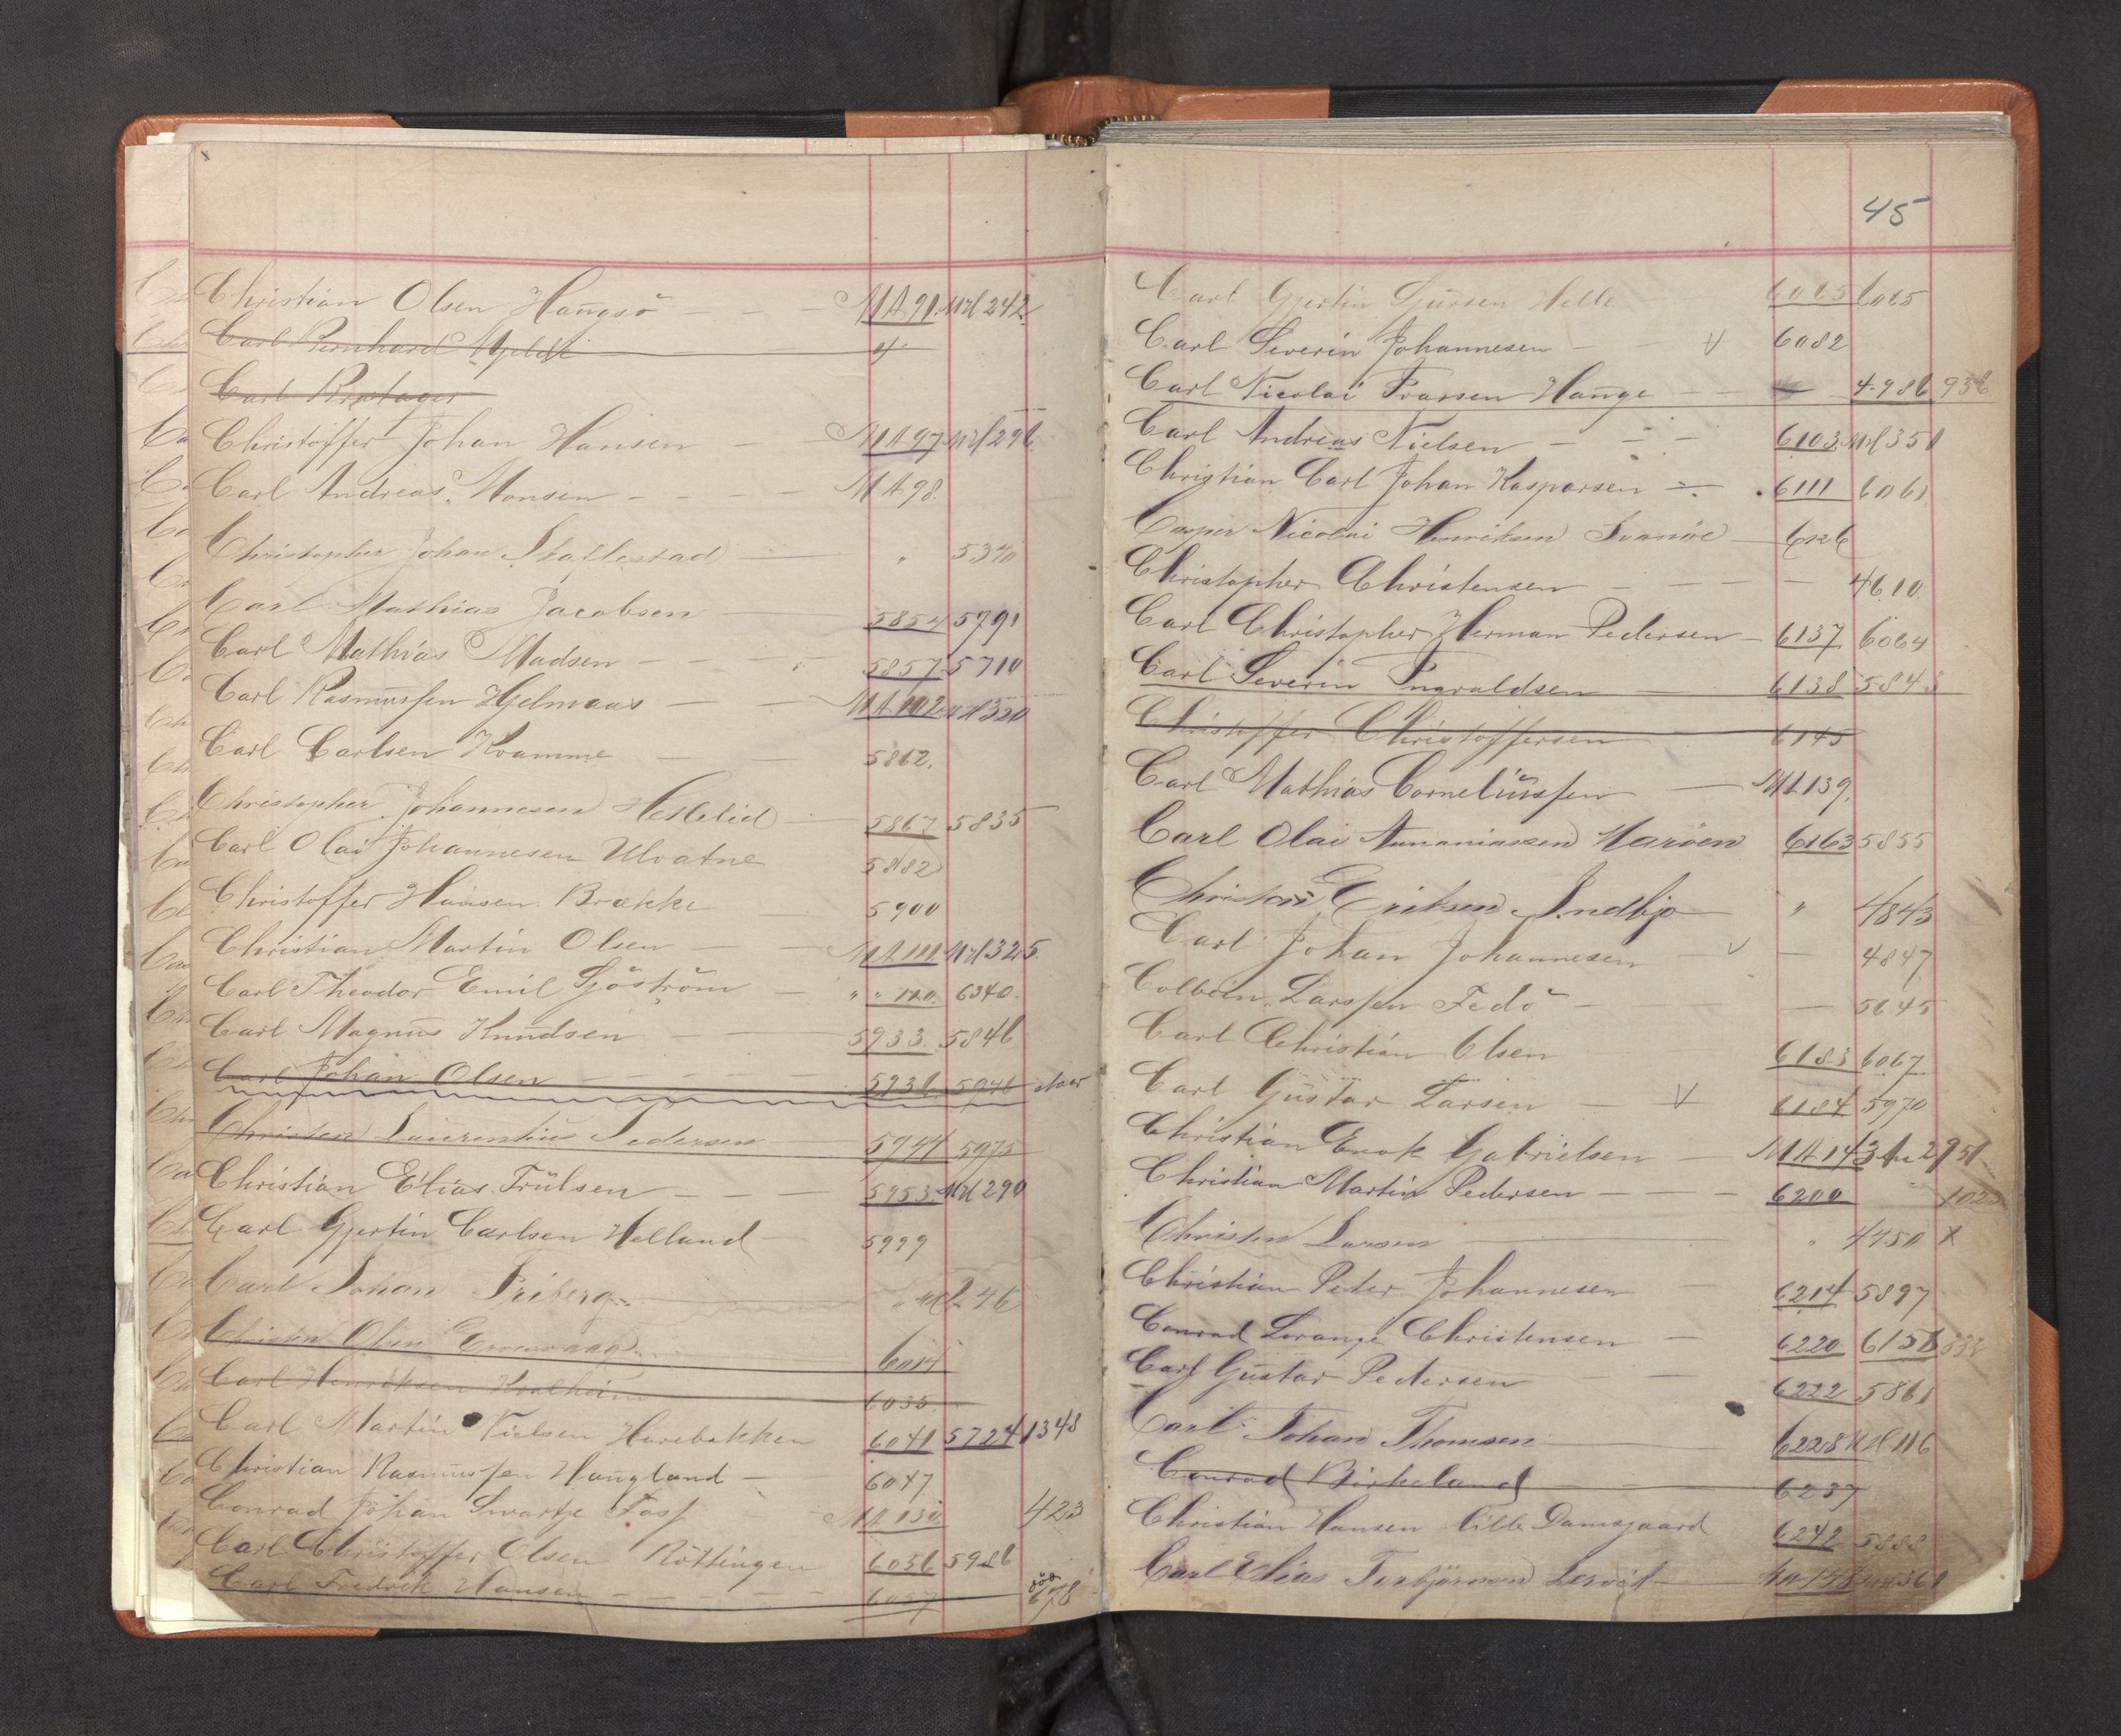 Christian Olsen Haugsö - - - MA 91. Ml 242
Carl Bernhard Mjelde 4
Carl
Christoffer Johan Hansen - - MA 97 Ml 296
Carl Andreas Monsen - - - MA 98.
Christopher Johan Stallestad " 5340
Carl Mathias Jacobsen 5854 5791
Carl Mathias Madsen - - - - 5857 5710
Carl Rasmussen Hjelmaas - - MA 102 Ml 350
Carl Carlsen Kvamme - - 5862.
Christopher Johannesen Hetlelid - 5867 5835
Carl Olai Johannesen Ulvatne 5882
Christoffer Hansen Brække 5900
Christian Martin Olsen - - MA 111 Ml 325.
Carl Theodor Emil Sjöström - " " 120. 6340.
Carl Magnus Knudsen - 5933. 5846
Carl Johan Olsen - - - - 5946
Christen Laurentius Pedersen 5944 5975
Christian Elias - - - 5953 Ml 290
Carl Gjertin Carlsen Helland - 5999
Carl Johan Friberg " Ml 246
Christen Olsen
Carl Henriksen 6035
Carl Martin Nielsen Harebakken 6041 5724 1348
Christian Rasmussen Haugland - 6047
Conrad Johan Swartz MA 130 423
Carl Christoffer Olsen Röttingen 6056 5986
Carl Fredrik Hansen - - - - 6057 död 678
45
Carl Gjertin Sjursen Helle 6065 6065
Carl Severin Johannesen - - V 6082
Carl Nicolai Ivarsen Hauge - - 4986 936
Carl Andreas Nielsen - - - 6103 Ml 351
Christian Carl Johan Kasparsen 6111 6061
Casper Nicolai Henriksen Svanöe - 6126
Christopher Christensen - - - 4610
Carl Christopher Herman Pedersen - 6137 6064
Carl Severin Ingvaldsen - 6138 5843
Christoffer Christoffersen 6145
Carl Mathias Corneliussen - MA 139.
Carl Olai Annaniassen Maröen 6163 5855
Christen Eriksen Indbjo " 4843
Carl Johan Johannesen - V - 4847
Colbein Larssen Fedö - - 5645
Carl Christian Olsen 6183 6067
Carl Gustav Larsen - V 6184 5970
Christian Enok Gabrielsen - MA 143 2951
Christian Martin Pedersen - - 6200
Christen Larsen - " 4450 X
Christian Peter Johannesen - 6214 5897
Conrad Lorange Christensen - 6220 6156
Carl Gustav Pedersen - - 6222 5861
Carl Johan Thomsen 6228 Ml 116
Conrad Birkeland - - 6237
Christian Hansen lille Damsgaard 6242 5888
Carl Elias Torbjörnsen Lervik